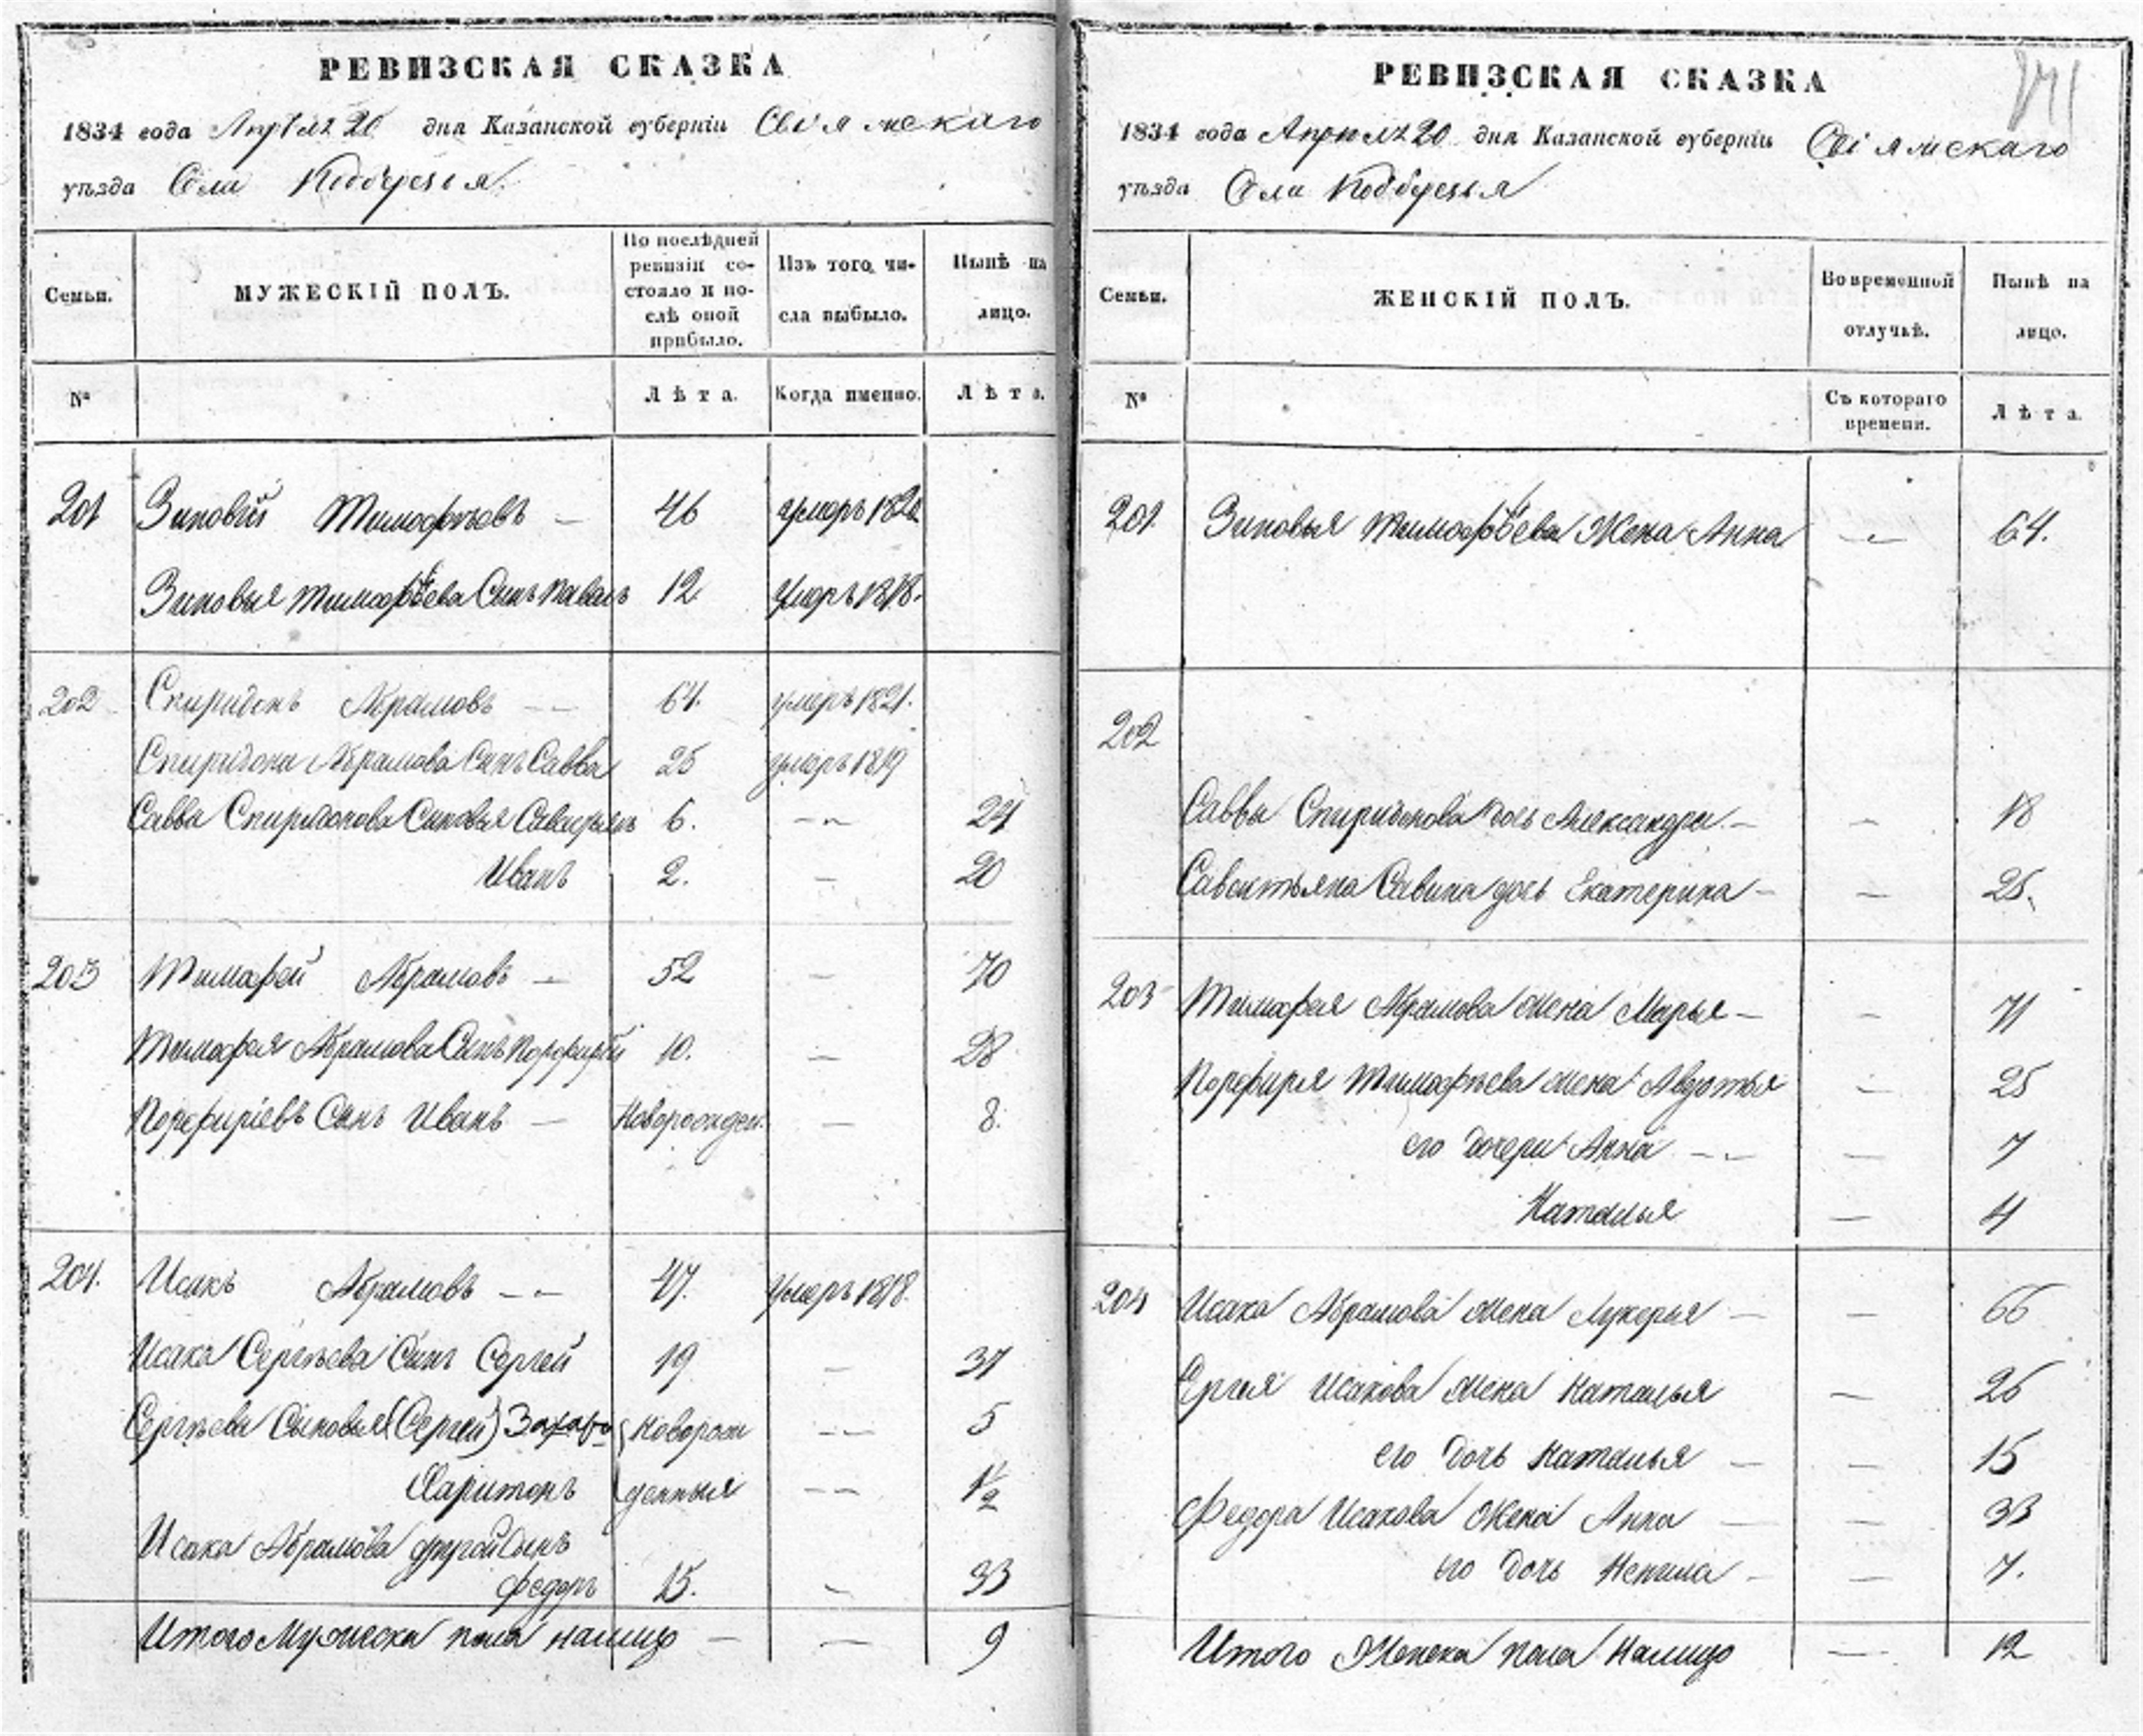 РЕВИЗСКАЯ СКАЗКА
1834 года Апреля 20 дня Казанской губерніи Свіямскаго
уѣзда Села
Семьи.
МУЖЕСКІЙ ПОЛЪ.
По послѣдней ревизіи состояло и послѣ оной прибыло.
Изъ того числа выбыло.
Нынѣ на лицо.
№
Лѣта.
Когда именно.
Лѣта.
201 Зиновій Тимофѣевъ — 46 умеръ 1820
Зиновья Тимофѣева Сынъ Павелъ 12 умеръ 1818.
202 Спиридонъ Абрамовъ — 64. умеръ 1821.
Спиридона Абрамова Сынъ Савва 25 умеръ 1819
Саввы Спиридонова Сыновья 6. — 24
Иванъ 2. — 20
203 Тимофей Абрамовъ — 52 — 70
Тимофея Абрамова Сынъ Порфирій 10. — 28
Порфиріевъ Сынъ Иванъ — Новорожден. — 8.
204. Исакъ Абрамовъ — 47. умеръ 1818.
Исака Сергѣева Сынъ Сергей 19 — 37
Сергѣевы Сыновья (Сергей) Захаръ новорож — 5
Харитонъ денныя — 1½
Исака Абрамова другой Сынъ
Федоръ 15. — 33
Итого Мужеска пола налицо — — 9
РЕВИЗСКАЯ СКАЗКА
1834 года Апреля 20 дня Казанской губерніи Свіямскаго
уѣзда Села
Семьи.
ЖЕНСКІЙ ПОЛЪ.
Во временной отлучкѣ.
Нынѣ на лицо.
№
Съ котораго времени.
Лѣта.
201. Зиновья Тимофѣева Жена Анна — 64.
202
Саввы Спиридонова дочь Александра — — 18
Савастьяна Савина дочь Екатерина — — 25.
203 Тимофея Абрамова жена Марья — — 71
Порфирья Тимофѣева жена Авдотья — 25
его дочери Анна — — 7
Наталья — 4
204 Исака Абрамова жена Лукерья — — 66
Ергея Исакова жена Наталья — 26
его дочь Наталья — — 15
Федора Исакова Жена Анна — — 33
его дочь Ненила — — 7.
Итого Женска пола Налицо — 12